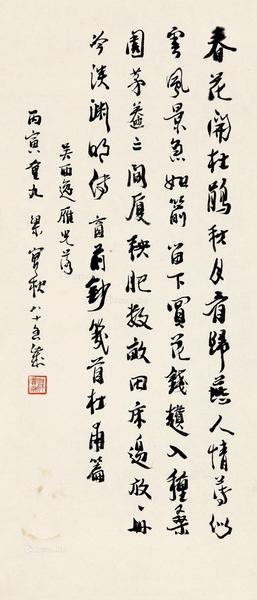 春花聞杜鵑秋月看歸燕人情薄似
雲風景急如箭留下買花錢趲入種桑
園茅蓋三間厦秧肥數畝田床邊放一冊
冷淡淵明傳窗前鈔幾首杜甫篇
吳西逸雁兒落
丙寅重九 梁實秋 八十五歲